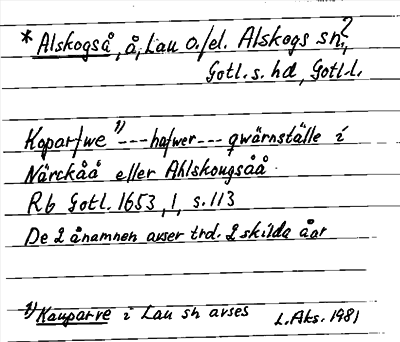 * Alskogså, å, Lau o./el. Alskogs sn?,
Gotl. s. hd, Gotl. l.
Koparfwe 1) --- hafwer --- qwärnställe i
Närckåå eller Ahlskougsåå
Rb Gotl. 1653, 1, s. 113
De 2 ånamnen avser trol. 2 skilda åar
1) Kauparve i Lau sn avses
L. Aks. 1981